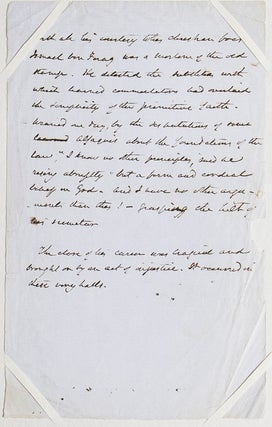 with all his courtesy to his christian foes
Ismael ben Farag was a moslem of the old
stamp. He detested the subtilties with
which learned commentators had overlaid
the simplicity of the primitive faith.
Wearied one day, by the disputations of some
Alfaquis about the foundations of the
law, "I know no other principles, said he
rising abruptly "but a firm and cordial
belief in God – and I have no other argu-
ments than this! – grasping the hilt of
his scimetar
The close of his career was tragical and
brought on by an act of injustice. It occurred in
these very halls.